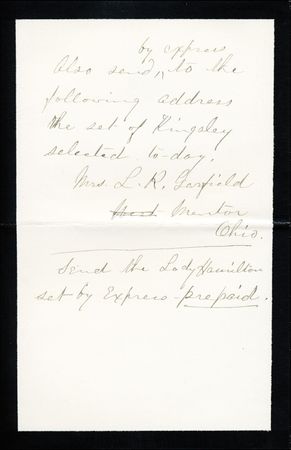 by express
Also send, to the
following address
the set of Kingsley
selected to-day.
Mrs. L. R. Garfield
West Mentor
Ohio.
Send the Lady Hamilton
set by Express prepaid.